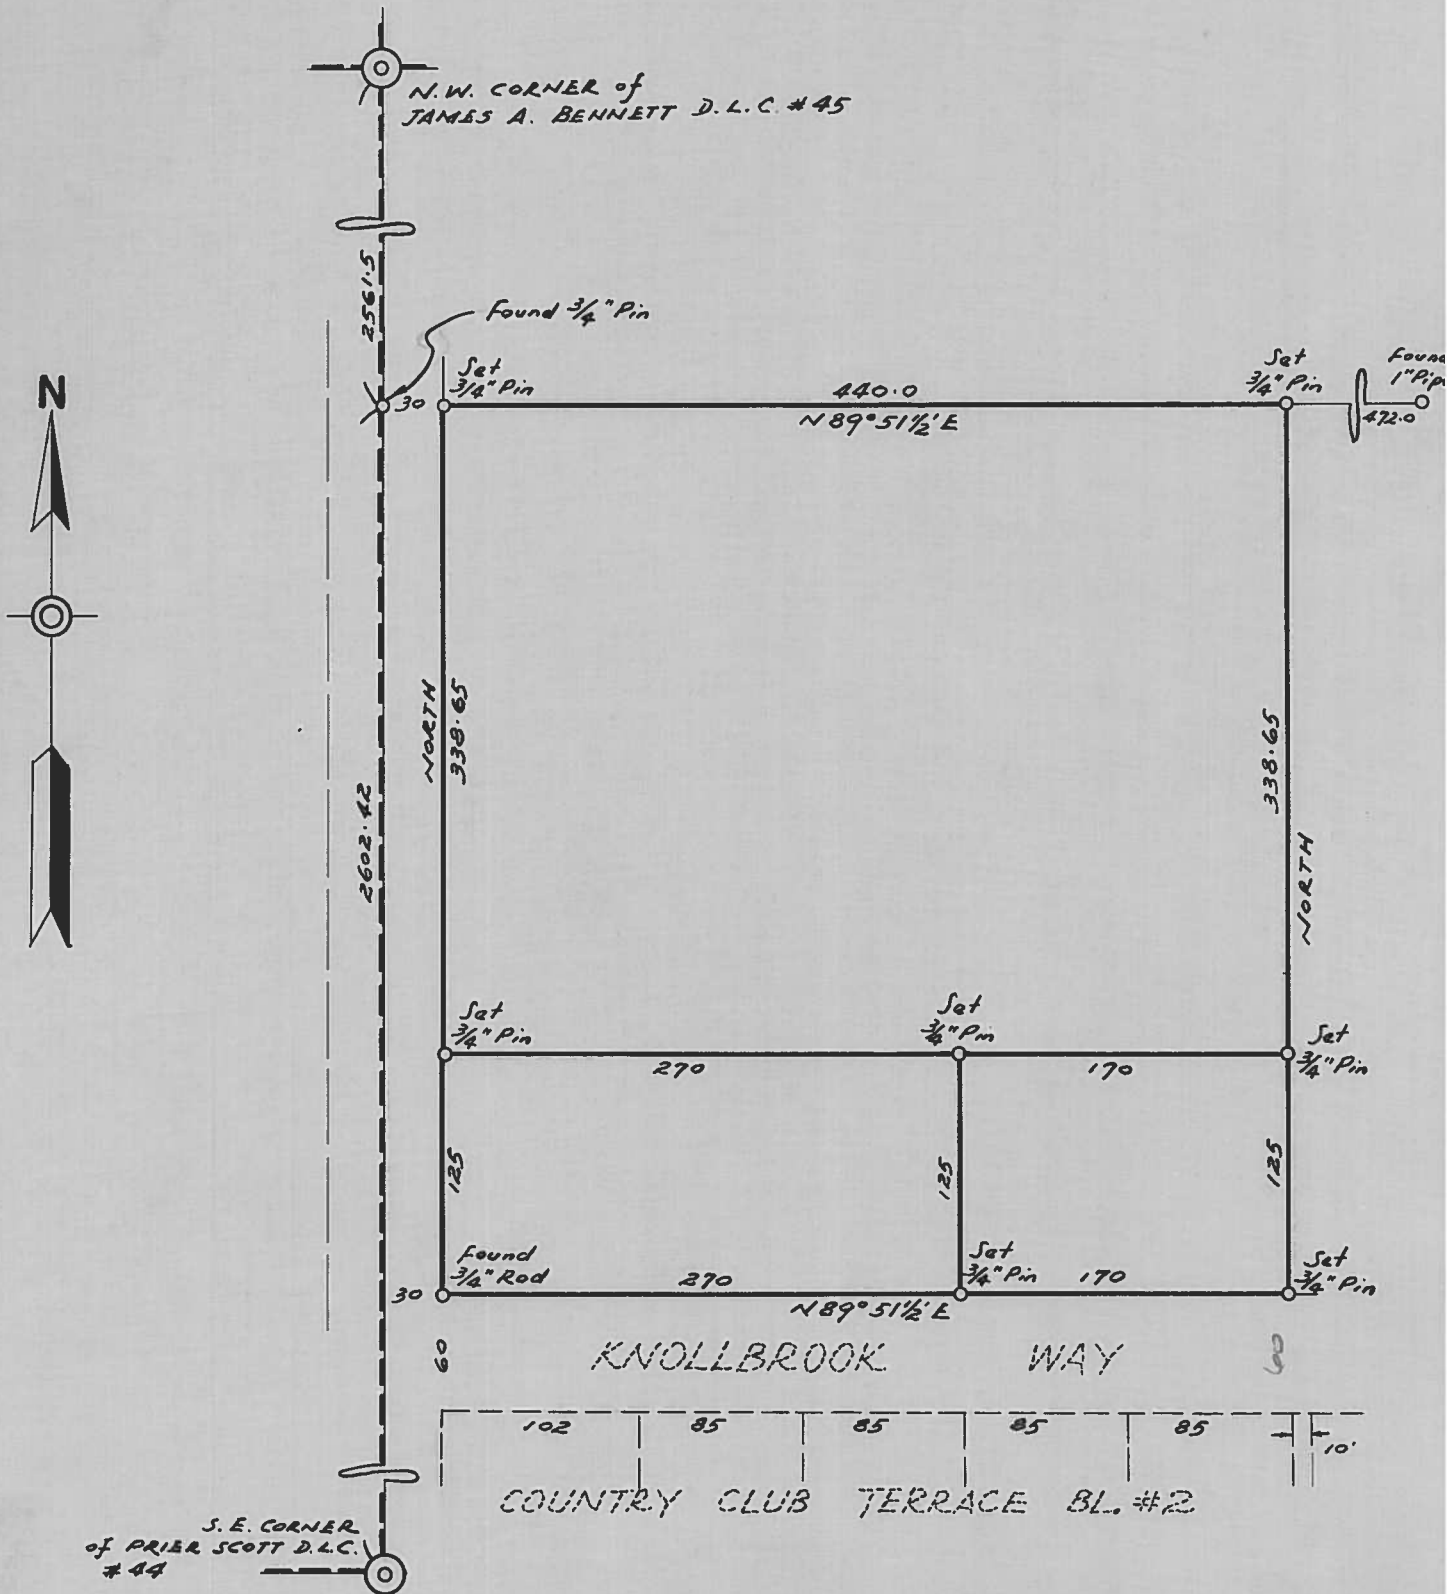 N.W. CORNER of
JAMES A. BENNETT D.L.C. #45
2561.5
Found 3/4" Pin
N
30
Set
3/4" Pin
440.0
N 89° 51 1/2' E
Set
3/4" Pin
1" Pip
472.0
NORTH
338.65
338.65
NORTH
2602.42
Set
3/4" Pin
Set
3/4" Pin
Set
3/4" Pin
270
170
125
125
125
Found
3/4" Rod
30
270
Set
3/4" Pin
170
Set
3/4" Pin
N 89° 51 1/2' E
60
KNOLLBROOK WAY
60
102
85
85
85
85
10'
COUNTRY CLUB TERRACE BL. #2
S.E. CORNER
of PRIER SCOTT D.L.C.
#44